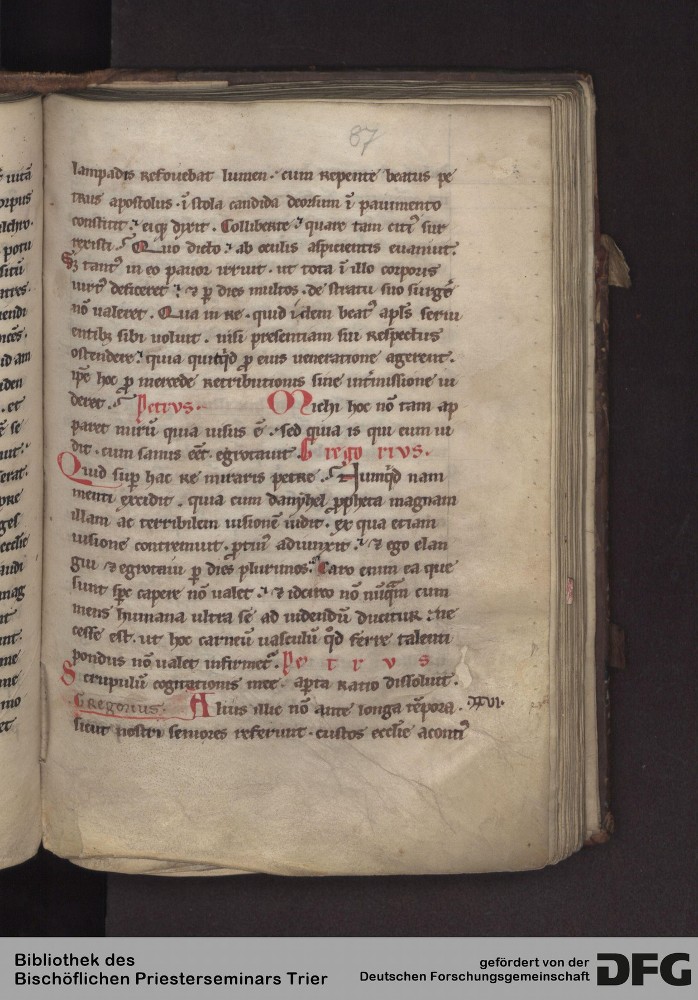 87
lampadis refovebat lumen · cum repente beatus pe
trus apostolus · ī stola candida deorsum ī pavimento
constitit · eiq; dixit · Colliberte · quare tam citi᷒ sur
rexisti · Quo dicto · ab oculis aspicientis evanuit ·
Sȝ tant᷒ in eo pavor irruit · ut tota ī illo corporis
uirt᷒ deficeret · & p dies multos · de stratu suo surgē
nō valeret · Qua in re · quid idem beat᷒ apl̄s serui
entibȝ sibi voluit · nisi presentiam sui respectus
ostendere · quia quitqͥd p eius ueneratione agerent ·
ip̄e hoc p mercede retributionis sine int̄missione ui
deret · Petrvs · Michi hoc nō tam ap
paret mirū quia uisus ē · sed quia is qui eum ui
dit · cum sanus eēt egrotauit Gregorivs ·
Quid sup hac re miraris petre · Numqͥd nam
menti excidit · quia cum danyhel ppheta magnam
illam ac terribilem uisionē uidit · ex qua etiam
uisione contremuit · ptin᷒ adiunxit · & ego elan
gui & egrotaui p dies plurimos · Caro enim ea que
sunt spc capere nō valet · & idcirco nō nūqͣm cum
mens humana ultra se ad uidendū ducitur · ne
cesse est · ut hoc carneū uasculū qd ferre talenti
pondus nō ualet infirmet᷒ · Petrvs
Scrupulū cogitationis mee · apta ratio dissoluit ·
Gregorius · Alius illic nō ante longa tēpora · xxvi ·
sicut nostri seniores referunt · custos ecclie aconti᷒
Bibliothek des
Bischöflichen Priesterseminars Trier
gefördert von der
Deutschen Forschungsgemeinschaft
DFG